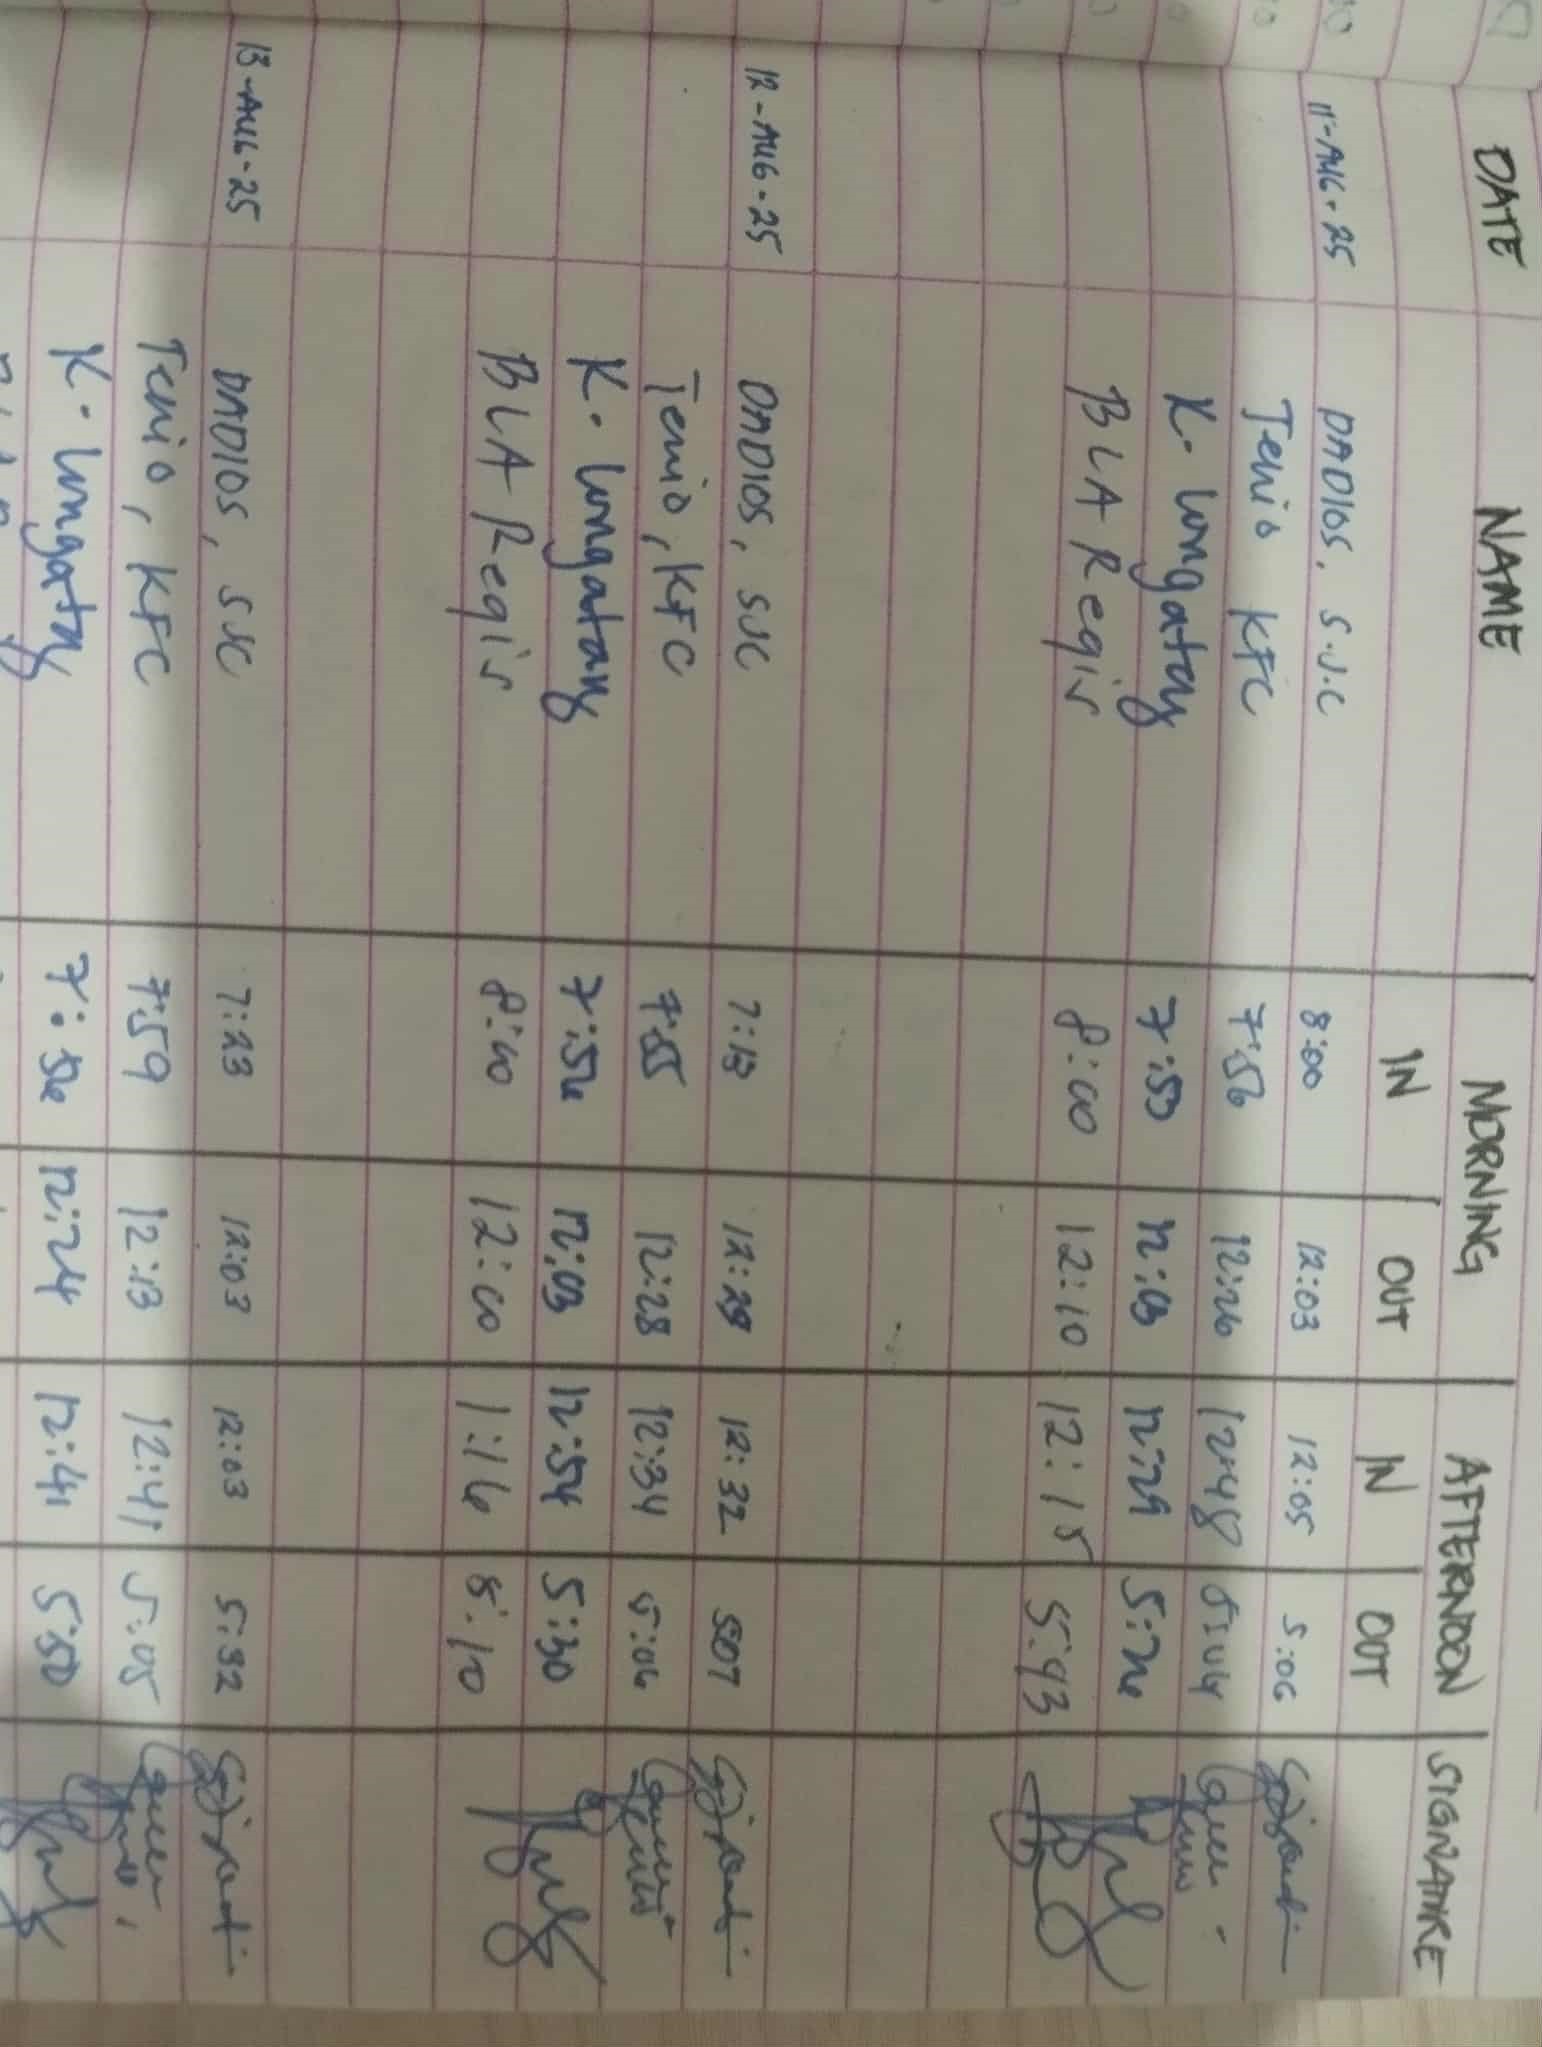 DATE NAME MORNING AFTERNOON SIGNATURE
IN OUT IN OUT
11-AUG-25 DADIOS, S.J.C 8:00 12:03 12:05 5:06
Tenio KFC 7:56 12:26 12:48
K. Lungatay 7:50 12:03 12:29 5:26
BLA Regis 8:00 12:10 12:15 5:43
12-AUG-25 DADIOS, SJC 7:13 12:29 12:32 507
Tenio, KFC 7:55 12:28 12:34 5:06
K. Lungatay 7:56 12:03 12:54 5:30
BLA Regis 8:00 12:00 1:16 8:10
13-AUG-25 DADIOS, SJC 7:23 12:03 12:03 5:32
Tenio, KFC 7:59 12:13 12:41 5:05
K. Lungatay 7:56 12:24 12:41 5:50